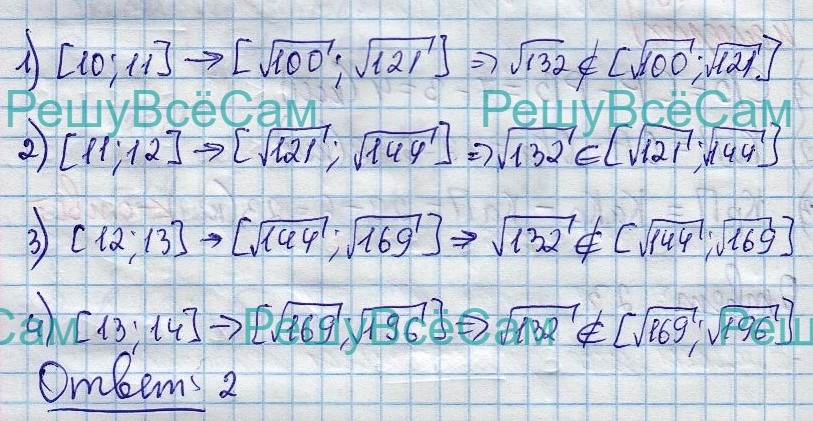 1) [10; 11] → [√100; √121] => √132 ∉ [√100; √121]
РешуВсёСам РешуВсёСам
2) [11; 12] → [√121; √144] => √132 ∈ [√121; √144]
3) [12; 13] → [√144; √169] => √132 ∉ [√144; √169]
4) [13; 14] → [√169; √196] => √132 ∉ [√169; √196]
Сам РешуВсёСам Реш
Ответ: 2